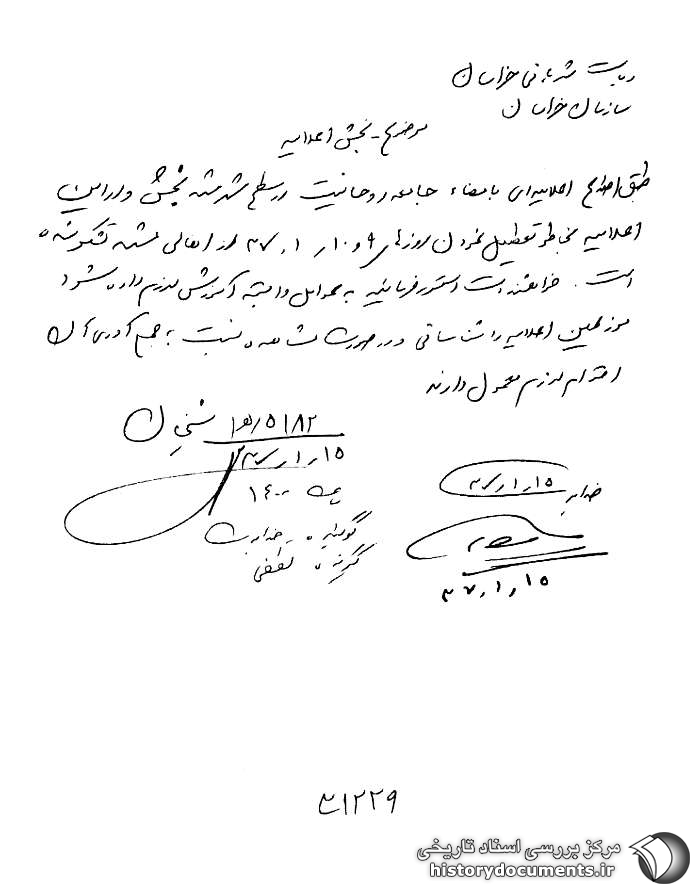 ریاست شهربانی خراسان
سازمان خراسان
موضوع - پخش اعلامیه
طبق اطلاع اعلامیه‌ای بامضاء جامعه روحانیت در سطح شهر مشهد پخش و در این
اعلامیه بخاطر تعطیل نمودن روزهای ۹ و ۱۰ر۱ر۳۷ از اهالی مشهد تشکر شده
است. خواهشمند است دستور فرمائید به عوامل وابسته آموزش لازم داده شود
موزعین اعلامیه را شناسائی و در صورت مشاهده نسبت به جمع آوری آن
اقدام لازم معمول دارند
شیخان
۱ﻫ/۵۱۸۲
۳۷ر۱ر۱۵
۱۴۰۰
گوینده - خدا
گیرنده - لطفی
۳۷ر۱ر۱۵
۳۷ر۱ر۱۵
۳۱۲۲۹
مرکز بررسی اسناد تاریخی
historydocuments.ir